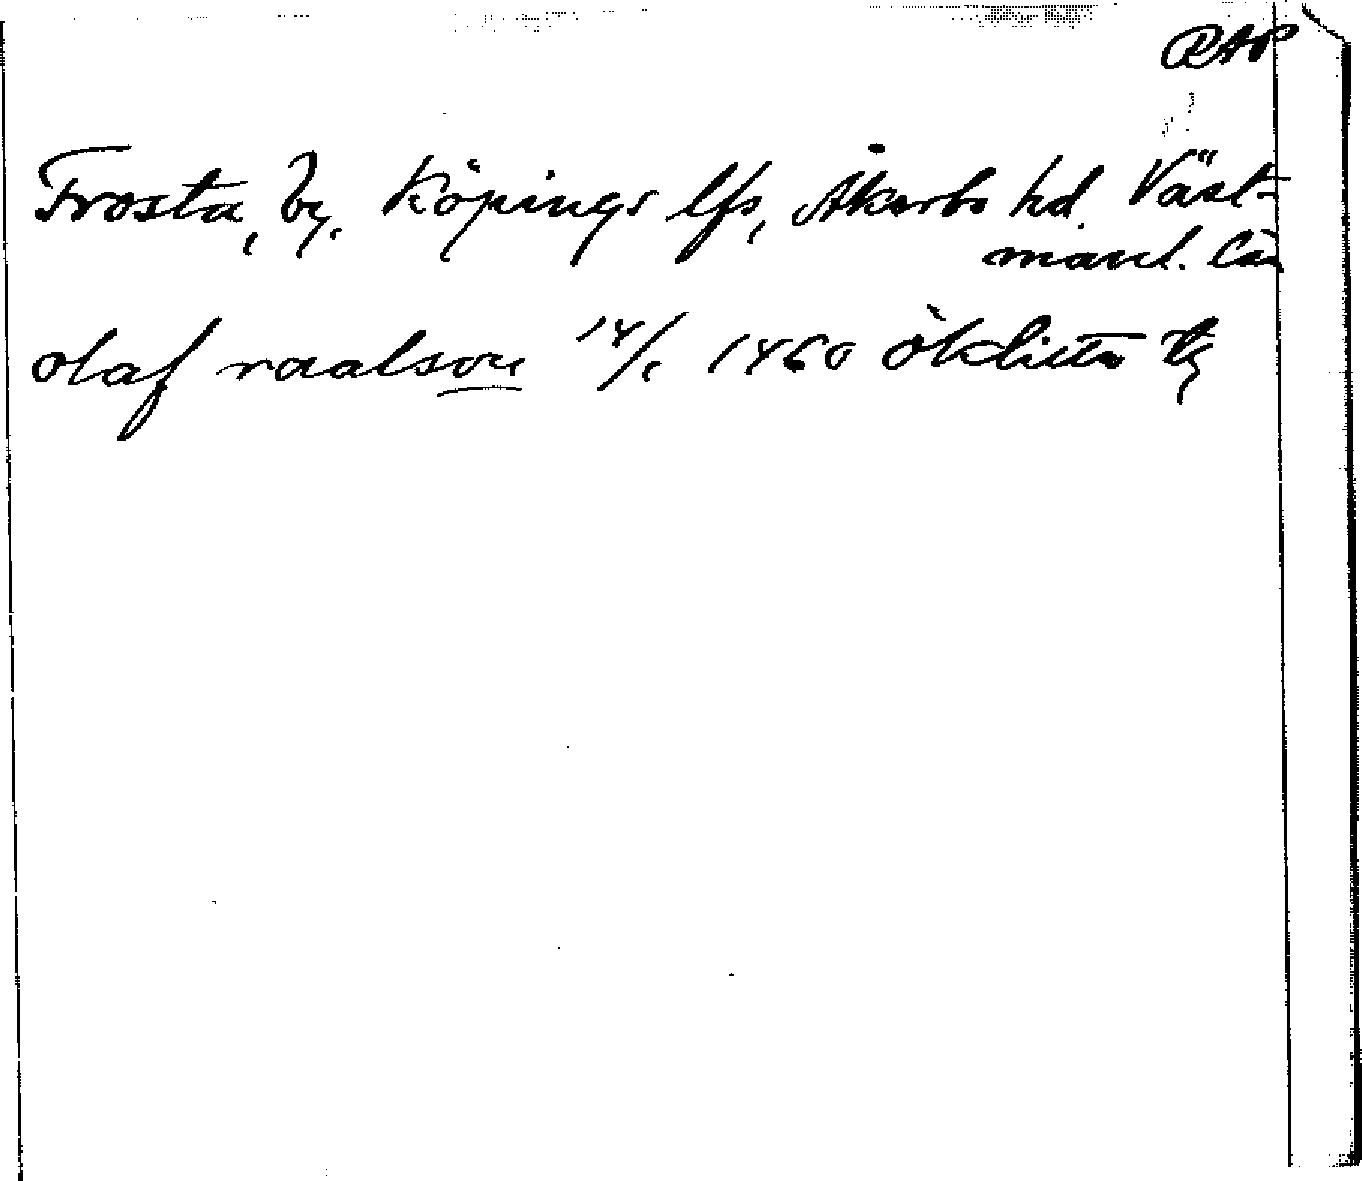 RAP
Frosta, by. Köpings lfs, Åkerbo hd. Väst-
manl. län
olaf raalson 14/1 1460